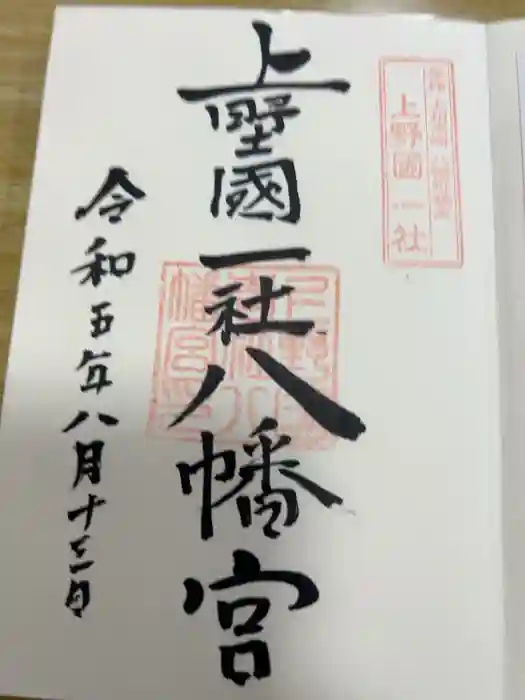 上野國一社
上野國一社八幡宮
令和五年八月十三日